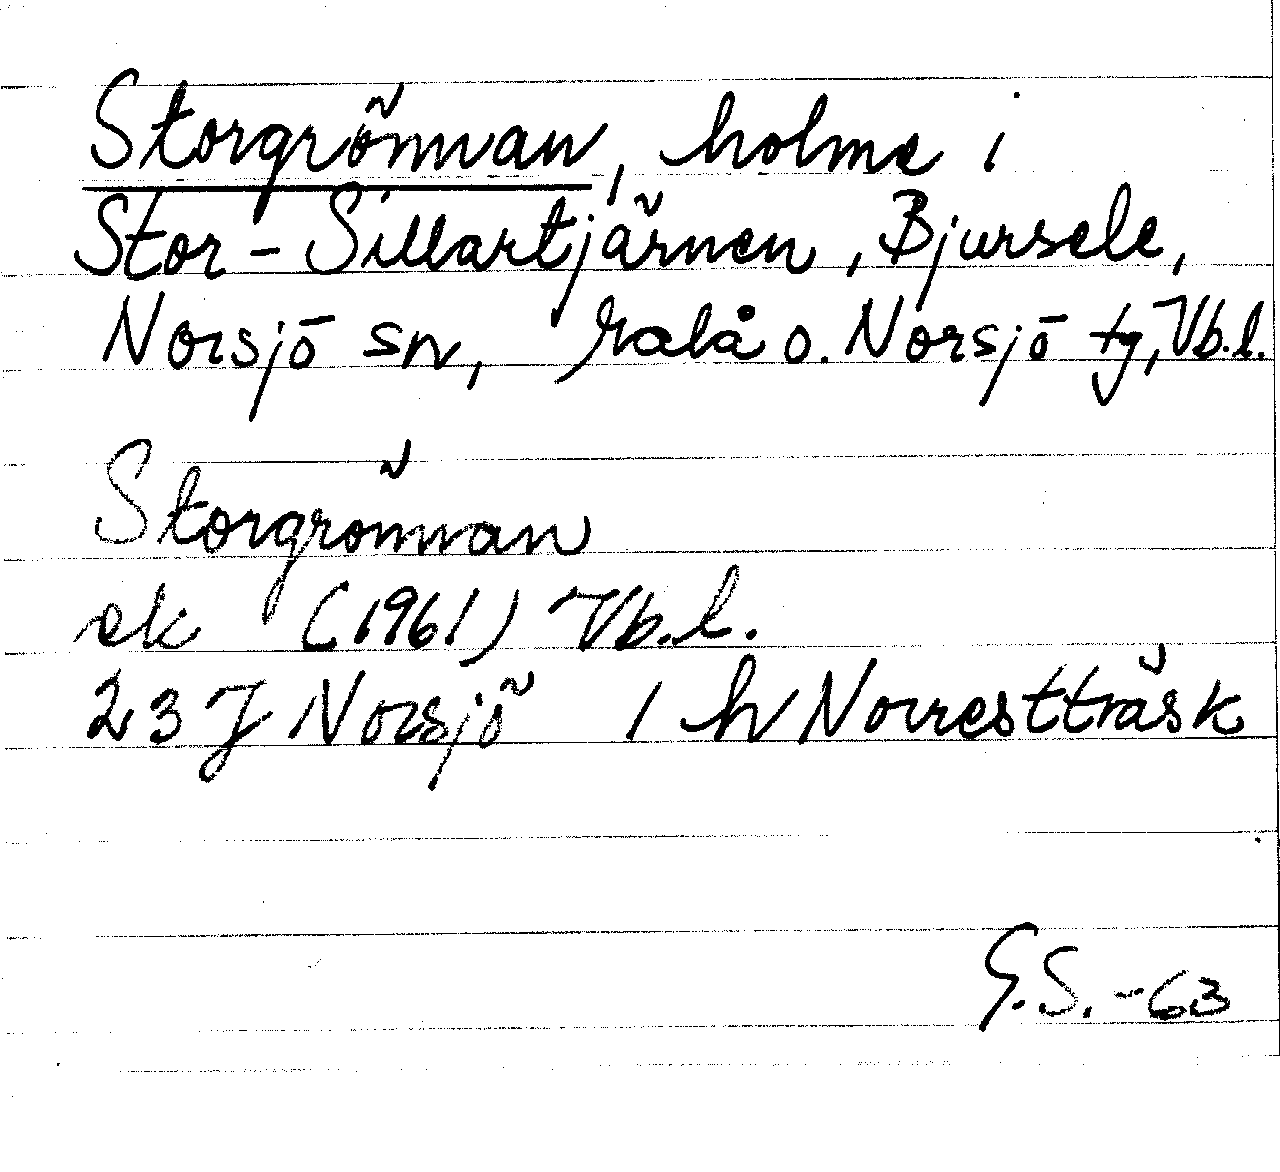 Storgrönnan, holme i
Stor-Sillartjärnen, Bjursele,
Norsjö sn, Malå o. Norsjö tg, Vb.l.
Storgrönnan
ek (1961) Vb.l.
23 J Norsjö 1 h Norrestträsk
G.S.-63